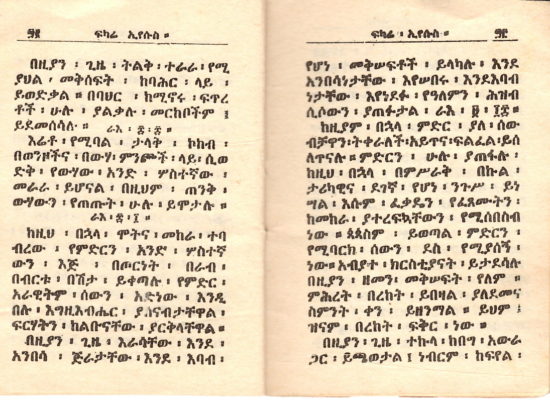 ፶፩ ፍካሬ ፡ ኢየሱስ ።
በዚያን ፡ ጊዜ ፡ ትልቅ ፡ ተራራ ፡ የሚ
ያህል ፡ መቅሰፍት ፡ ከባሕር ፡ ላይ ፡
ይወድቃል ። በባህር ፡ ከሚኖሩ ፡ ፍጥረ
ቶች ፡ ሁሉ ፡ ያልቃሉ ፡ መርከቦችም ፤
ይደመሰሳሉ ። ራእ ፡ ፰ ፡ ፰ ።
እሬቶ ፡ የሚባል ፡ ታላቅ ፡ ኮከብ ፡
በወንዞችና ፡ በውሃ፡ ምንጮች ፡ ላይ፡ ሲወ
ድቅ ፡ የውሃው ፡ አንድ ፡ ሦስተኛው ፡
መራራ ፡ ይሆናል ፡ በዚህም ፡ ጠንቅ ፡
ውሃውን ፡ የጠጡት ፡ ሁሉ ፡ ይሞታሉ ።
ራእ ፡ ፰ ፡ ፲ ።
ከዚህ ፡ በኋላ ፡ ሞትና ፡ መከራ ፡ ተባ
ብረው ፡ የምድርን ፡ አንድ ፡ ሦስተኛ
ውን ፡ እጅ ፡ በጦርነት ፡ በራብ ፡
በብርቱ ፡ በሽታ ፡ ይቀጣሉ ፡ የምድር ፡
አራዊትም ፡ ሰውን ፡ አድነው ፡ እንዲ
በሉ ፡ እግዚአብሔር ፡ ያዝናብታቸዋል ፡
ፍርሃትን ፡ ከልቡናቸው ፡ ያርቅላቸዋል ።
በዚያን ፡ ጊዜ ፡ እራሳቸው ፡ እንደ ፡
አንበሳ ፡ ጅራታቸው ፡ እንደ ፡ እባብ ፡
ፍካሬ ፡ ኢየሱስ ።
የሆነ ፡ መቅሠፍቶች ፡ ይላካሉ ፡ እንደ
አንበሳነታቸው ፡ እየሠበሩ ፡ እንደእባብ
ነታቸው ፡ እየነደፉ ፡ የዓለምን ፡ ሕዝብ
ሲሶውን ፡ ያጠፉታል ፡ ራእ ፡ ፱ ፡ ፲፯ ።
ከዚያም ፡ በኋላ ፡ ምድር ፡ ያለ ፡ ሰው
ብቻዋን፡ትቀራለች፡አይጥና፡ፍልፈል፡ይሰ
ለጥናሉ ። ምድርን ፡ ሁሉ ፡ ያጠፋሉ ፡
ከዚህ ፡ በኋላ ፡ በምሥራቅ ፡ በኩል ፡
ታሪካዊና ፡ ደገኛ ፡ የሆነ ፡ ንጉሥ ፡ ይነ
ግሣል ፡ እሱም ፡ ፈቃዴን ፡ የፈጸሙትን ፡
ከመከራ ፡ ያተረፍኳቸውን ፡ የሚሰበስብ
ነው ። ጳጳስም ፡ ይወጣል ፡ ምድርን ፡
የሚባርክ ፡ ሰውን ፡ ደስ ፡ የሚያሰኝ ፡
ነው። አብያተ ፡ ክርስቲያናት ፡ ይታደሳሉ
በዚያን ፡ ዘመን፡ መቅሠፍት ፡ የለም ።
ምሕረት ፡ በረከት ፡ ይበዛል ፡ ያለደመና
ስምንት ፡ ቀን ፡ ይዘንማል ። ይህም ፡
ዝናም ፡ በረከት ፡ ፍቅር ፡ ነው ።
በዚያን ፡ ጊዜ ፡ ተኩላ ፡ ከበግ ፡ አውራ
ጋር ፡ ይጫወታል ፤ ነብርም ፡ ከፍየል ፡